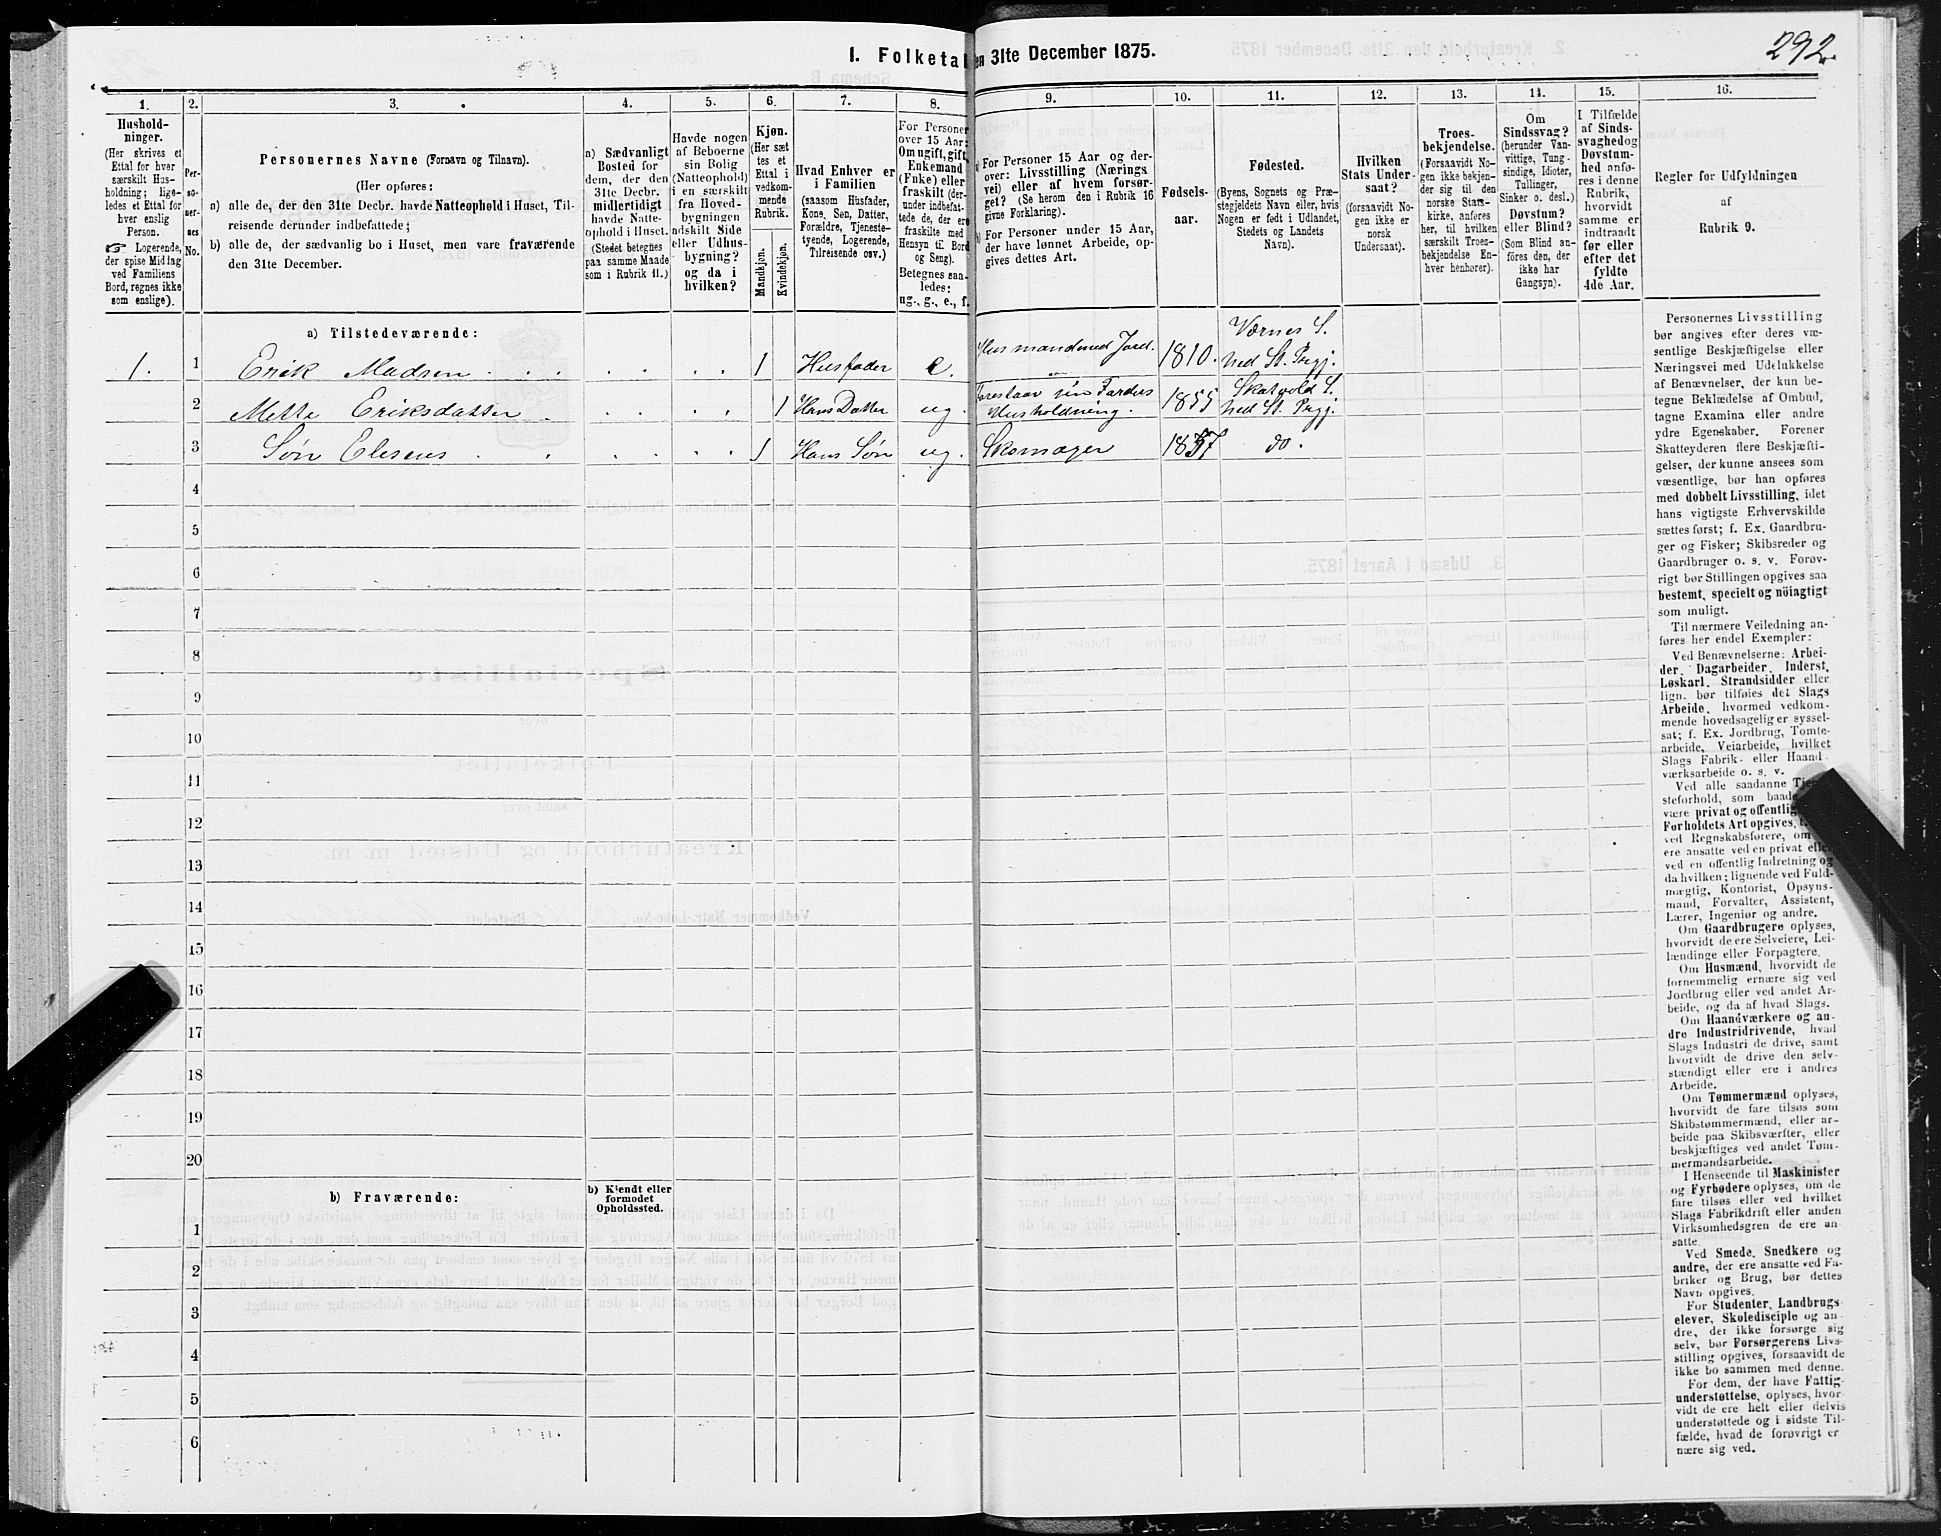 292.
I. Folketal
en 31te December 1875.
1. 2. 3. 4. 5. 6. 7. 8. 9. 10. 11. 12. 13. 14. 15. 16.
Hushold-
ninger.
(Her skrives et
Ettal for hver
særskilt Hus-
holdning; lige-
ledes et Ettal for
hver enslig
Person.
☞ Logerende,
der spise Middag
ved Familiens
Bord, regnes ikke
som enslige).
Per-
so-
ner-
nes
No.
Personernes Navne (Fornavn og Tilnavn).
(Her opføres:
a) alle de, der den 31te Decbr. havde Natteophold i Huset, Til-
reisende derunder indbefattede;
b) alle de, der sædvanlig bo i Huset, men vare fraværende
den 31te December.
a) Sædvanligt
Bosted for
dem, der den
31te Decbr.
midlertidigt
havde Natte-
ophold i Huset.
(Stedet betegnes
paa samme Maade
som i Rubrik 11.)
Havde nogen
af Beboerne
sin Bolig
(Natteophold)
i en særskilt
fra Hoved-
bygningen
adskilt Side
eller Udhus-
bygning?
og da i
hvilken?
Kjøn.
(Her sæt
tes et
Ettal i
vedkom-
mende
Rubrik.
Mandkjøn.
Kvindekjøn.
Hvad Enhver er
i Familien
(saasom Husfader,
Kone, Søn, Datter,
Forældre, Tjeneste-
tyende, Logerende,
Tilreisende osv.)
For Personer
over 15 Aar:
Om ugift, gift,
Enkemand
(Enke) eller
fraskilt (der-
under indbefat-
tede de, der ere
fraskilte med
Hensyn til Bord
og Seng).
Betegnes saa-
ledes:
ug., g., e., f.
a) For Personer 15 Aar og der-
over: Livsstilling (Nærings
vei) eller af hvem forsør-
get? (Se herom den i Rubrik 16
givne Forklaring).
b) For Personer under 15 Aar,
der have lønnet Arbeide, op-
gives dettes Art.
Fødsels-
aar.
Fødested.
(Byens, Sognets og Præ-
stegjeldets Navn eller, hvis
Nogen er født i Udlandet,
Stedets og Landets
Navn).
Hvilken
Stats Under-
saat?
(forsaavidt No-
gen ikke er
norsk
Undersaat).
Troes-
bekjendelse.
(Forsaavidt No-
gen ikke bekjen-
der sig til den
norske Stats-
kirke, anføres
her, til hvilken
særskilt Troes-
bekjendelse En-
hver henhorer).
Om
Sindssvag?
(herunder Van-
vittige, Tung-
sindige, Idioter,
Tullinger,
Sinker o. desl.)
Døvstum?
eller Blind?
(Som Blind an-
föres den, der
ikke har
Gangsyn).
I Tilfælde
af Sinds-
svaghed og
Døvstum-
hed anfø-
res i denne
Rubrik,
hvorvidt
samme er
indtraadt
før eller
efter det
fyldte
4de Aar.
Regler for Udfyldningen
af
Rubrik 9.
a) Tilstedeværende:
1. 1 Erik Madsen 1 Husfader e. Husmand med Jord. 1810. Værnes S. Ned St. Prgj.
2 Mette Eriksdatter 1 Hans Datter ug. Forestaar sin Faders Husholdning. 1855 Skatvold S. Ned St. Prgj.
3 Søn Eliseus 1 Hans Søn ug. Skomager 1857 do.
4
5
6
7
8
9
10
11
12
13
14
15
16
17
18
19
20
b) Fraværende:
b) Kjendt eller
formodet
Opholdssted.
1
2
3
4
5
6
Personernes Livsstilling
bør angives efter deres væ-
sentlige Beskjæftigelse eller
Næringsvei med Udelukkelse
af Benævnelser, der kun be-
tegne Beklædelse af Ombud,
tagne Examina eller andre
ydre Egenskaber. Forener
Skatteyderen flere Beskjæfti-
gelser, der kunne ansees som
væsentlige, bør han opføres
med dobbelt Livsstilling, idet
hans vigtigste Erhvervskilde
sættes først; f. Ex. Gaardbru-
ger og Fisker; Skibsreder og
Gaardbruger o. s. v. Forøv-
rigt bør Stillingen opgives saa
bestemt, specielt og nöiagtigt
som muligt.
Til nærmere Veiledning an-
føres her endel Exempler:
Ved Benævnelserne: Arbei-
der, Dagarbeider, Inderst,
Løskarl, Strandsidder eller
lign. bør tilføies det Slags
Arbeide, hvormed vedkom-
mende hovedsagelig er syssel-
sat; f. Ex. Jordbrug, Tomte-
arbeide, Veiarbeide, hvilket
Slags Fabrik- eller Haand-
værksarbeide o. s. v.
Ved alle saadanne Tje
steforhold, som baade
være privat og offentlig
Forholdets Art opgives,
ved Regnskabsførere, om
ere ansatte ved en privat eller
ved en offentlig Indretning og
da hvilken; lignende ved Fuld-
mægtig, Kontorist, Opsyns-
mand, Forvalter, Assistent,
Lærer, Ingeniør og andre.
Om Gaardbrugere oplyses,
hvorvidt de ere Selveiere, Lei-
lændinge eller Forpagtere.
Om Husmænd, hvorvidt de
fornemmelig ernære sig ved
Jordbrug eller ved andet Ar-
beide, og da af hvad Slags.
Om Haandværkere og an-
dre Industridrivende, hvad
Slags Industri de drive, samt
hvorvidt de drive den selv-
stændigt eller ere i andres
Arbeide.
Om Tømmermænd oplyses,
hvorvidt de fare tilsøs som
Skibstømmermænd, eller ar-
beide paa Skibsværfter, eller
beskjæftiges ved andet Tøm-
mermandsarbeide.
I Henseende til Maskinister
og Fyrbødere oplyses, om de
fare tilsøs eller ved hvilket
Slags Fabrikdrift eller anden
Virksomhedsgren de ere an-
satte.
Ved Smede, Snedkere og
andre, der ere ansatte ved Fa-
briker og Brug, bør dettes
Navn opgives.
For Studenter, Landbrugs-
elever, Skoledisciple og an-
dre, der ikke forsørge sig
selv, bør Forsørgerens Livs-
stilling opgives, forsaavidt de
ikke bo sammen med denne.
For dem, der have Fattig-
understøttelse, oplyses, hvor-
vidt de ere helt eller delvis
understøttede og i sidste Til-
fælde, hvad de forøvrigt er
nære sig ved.